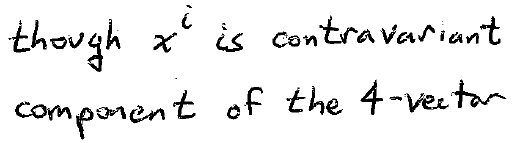 though xⁱ is contravariant
component of the 4-vector